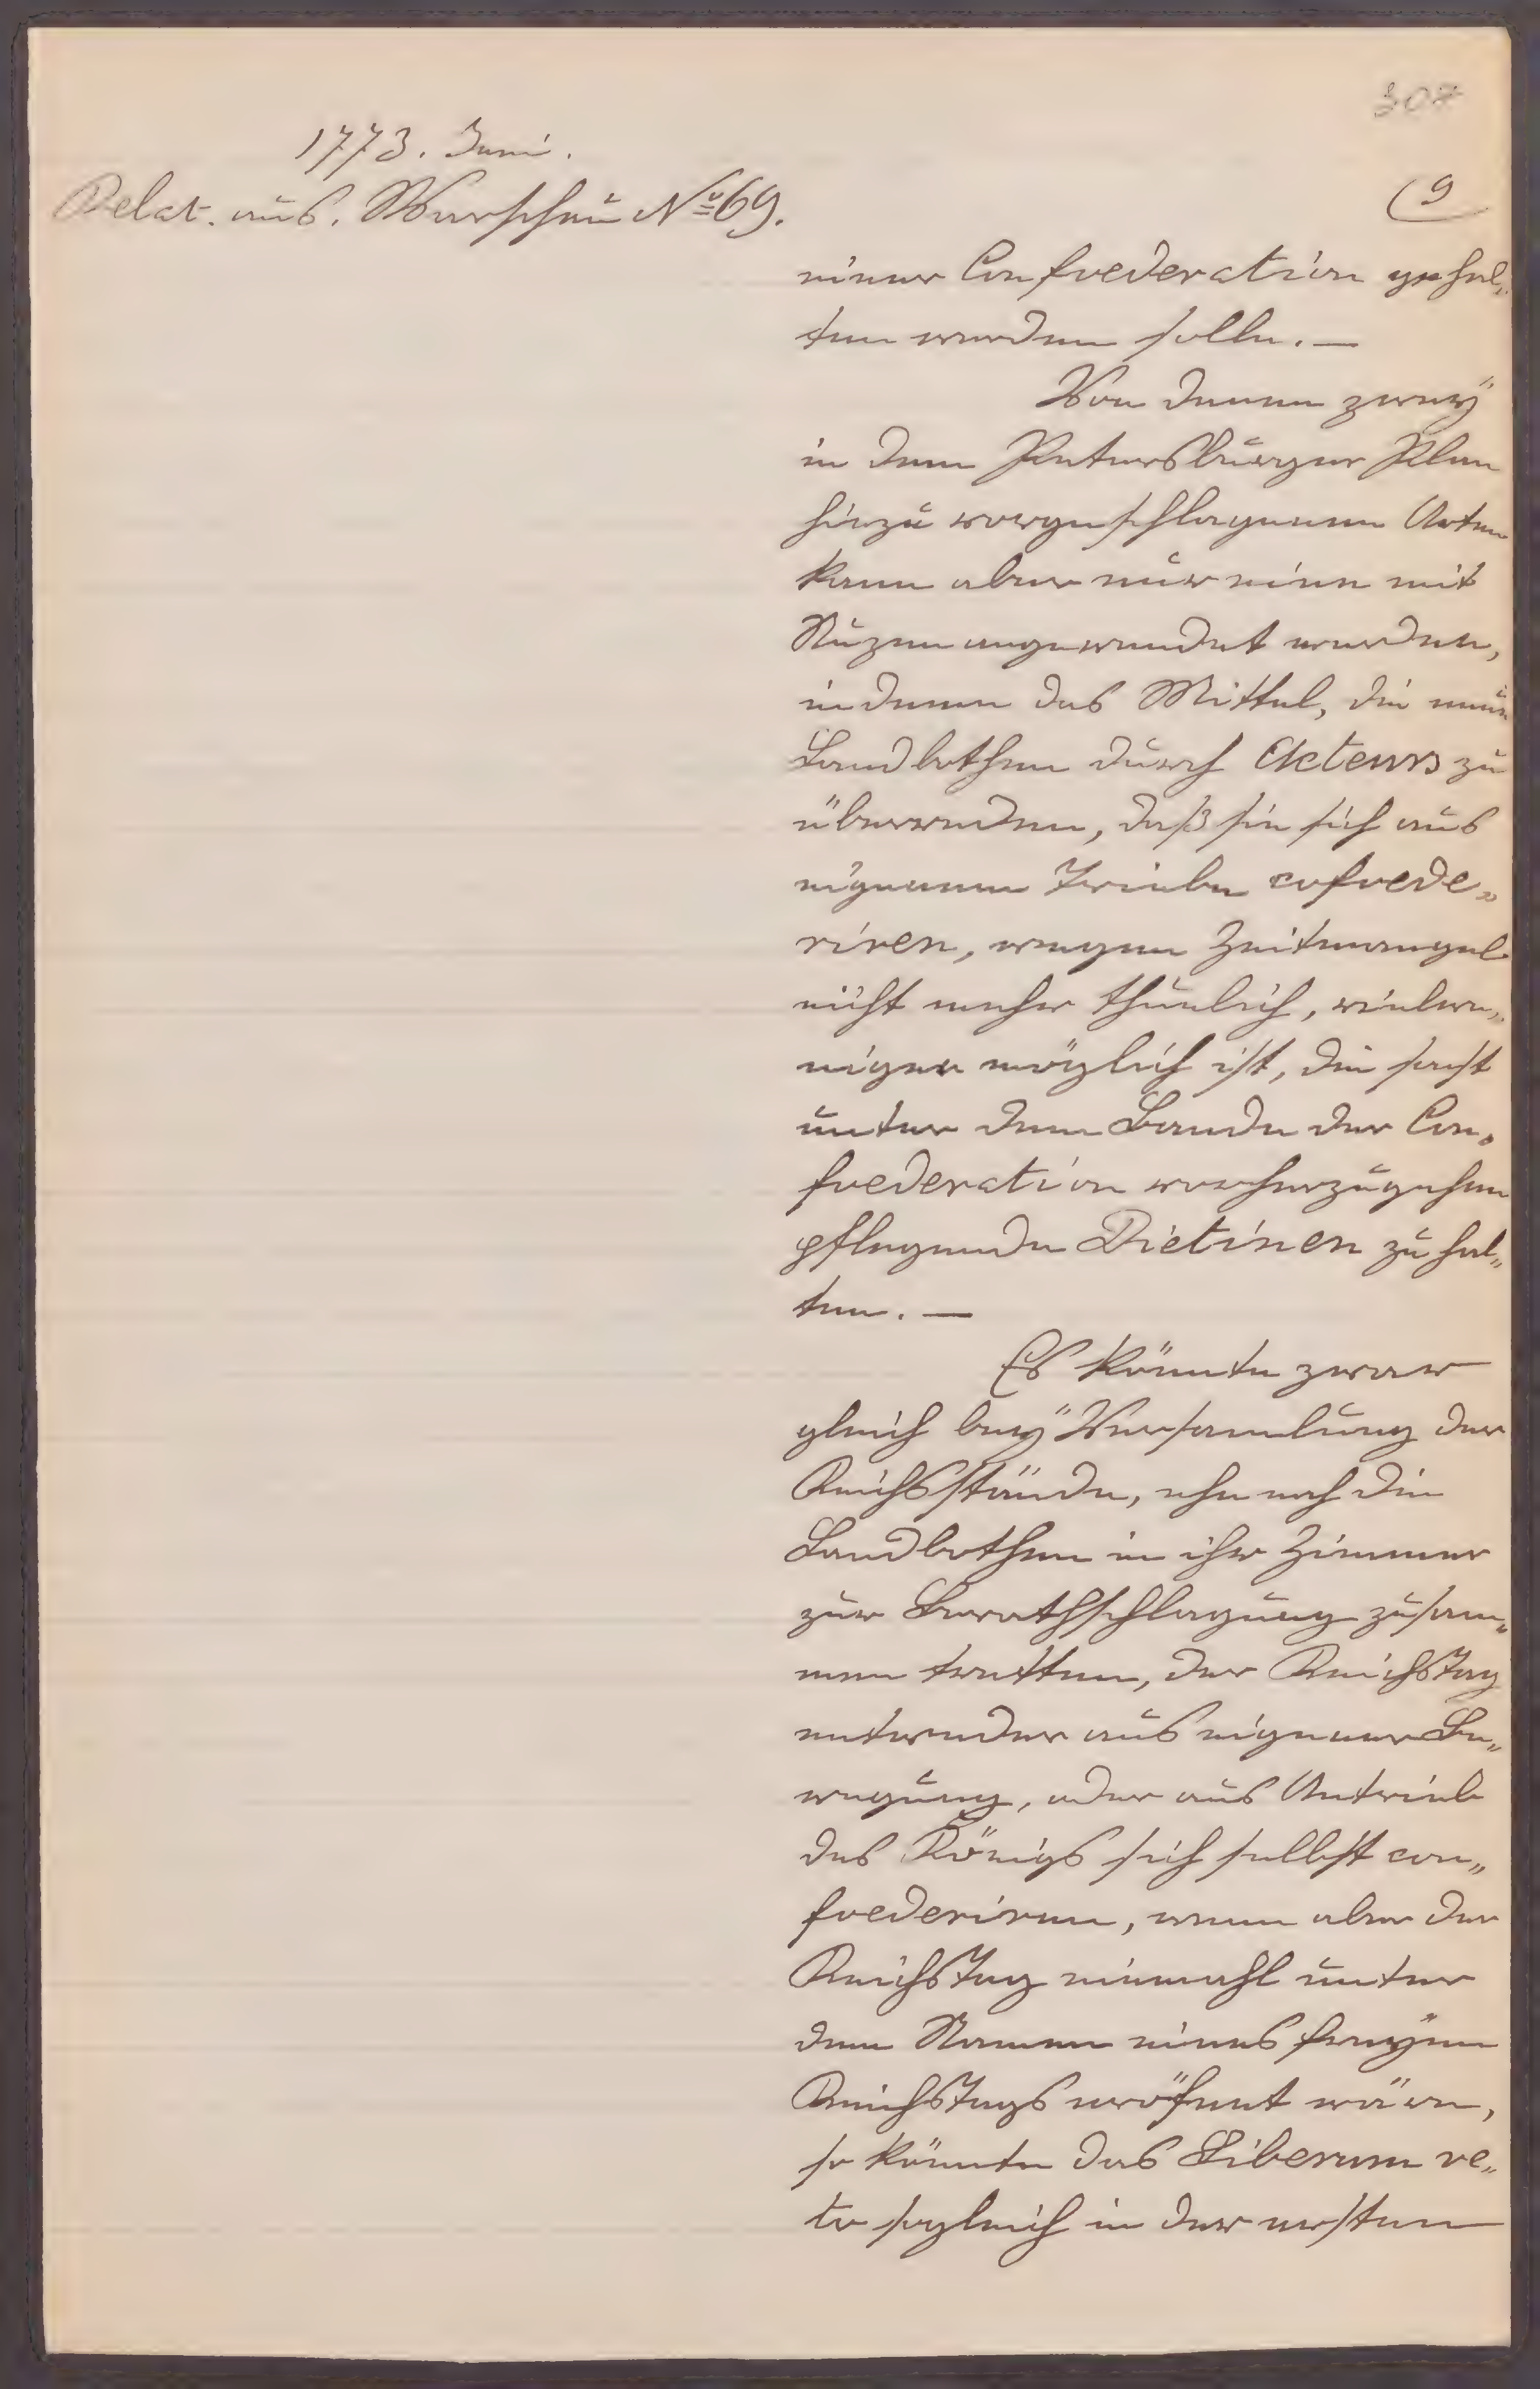 307
1773. Juni.
Relat. aus. Warschau No 69.
(9
einer Confoederation gehal„
ten werden solle. —
Von denen zweÿ
in dem Petersburger Plan
hiezu vorgeschlagenen Arten
kann aber nur eine mit
Nuzen angewendet werden,
indeme das Mittel, die neue
Landbothen durch Acteurs zu
überreden, daß sie sich aus
eigenem Triebe cofoede„
riren, wegen Zeitmangel
nicht mehr thunlich, vielwe„
niger möglich ist, die sonst
unter dem Bande der Con„
foederation vorherzugehen
pflegende Dietinen zu hal„
ten. —
Es könnte zwar
gleich beÿ Versamlung der
Reichsstände, ehe noch die
Landbothen in ihr Zimmer
zur Berathschlagung zusam„
men tretten, der Reichstag
entweder aus eigener Be„
wegung, oder aus Antrieb
des Königs sich selbst con„
foederiren, wenn aber der
Reichstag einmahl unter
dem Namen eines freÿen
Reichstags eröfnet wäre,
so könnte das Liberum ve„
to sogleich in der ersten